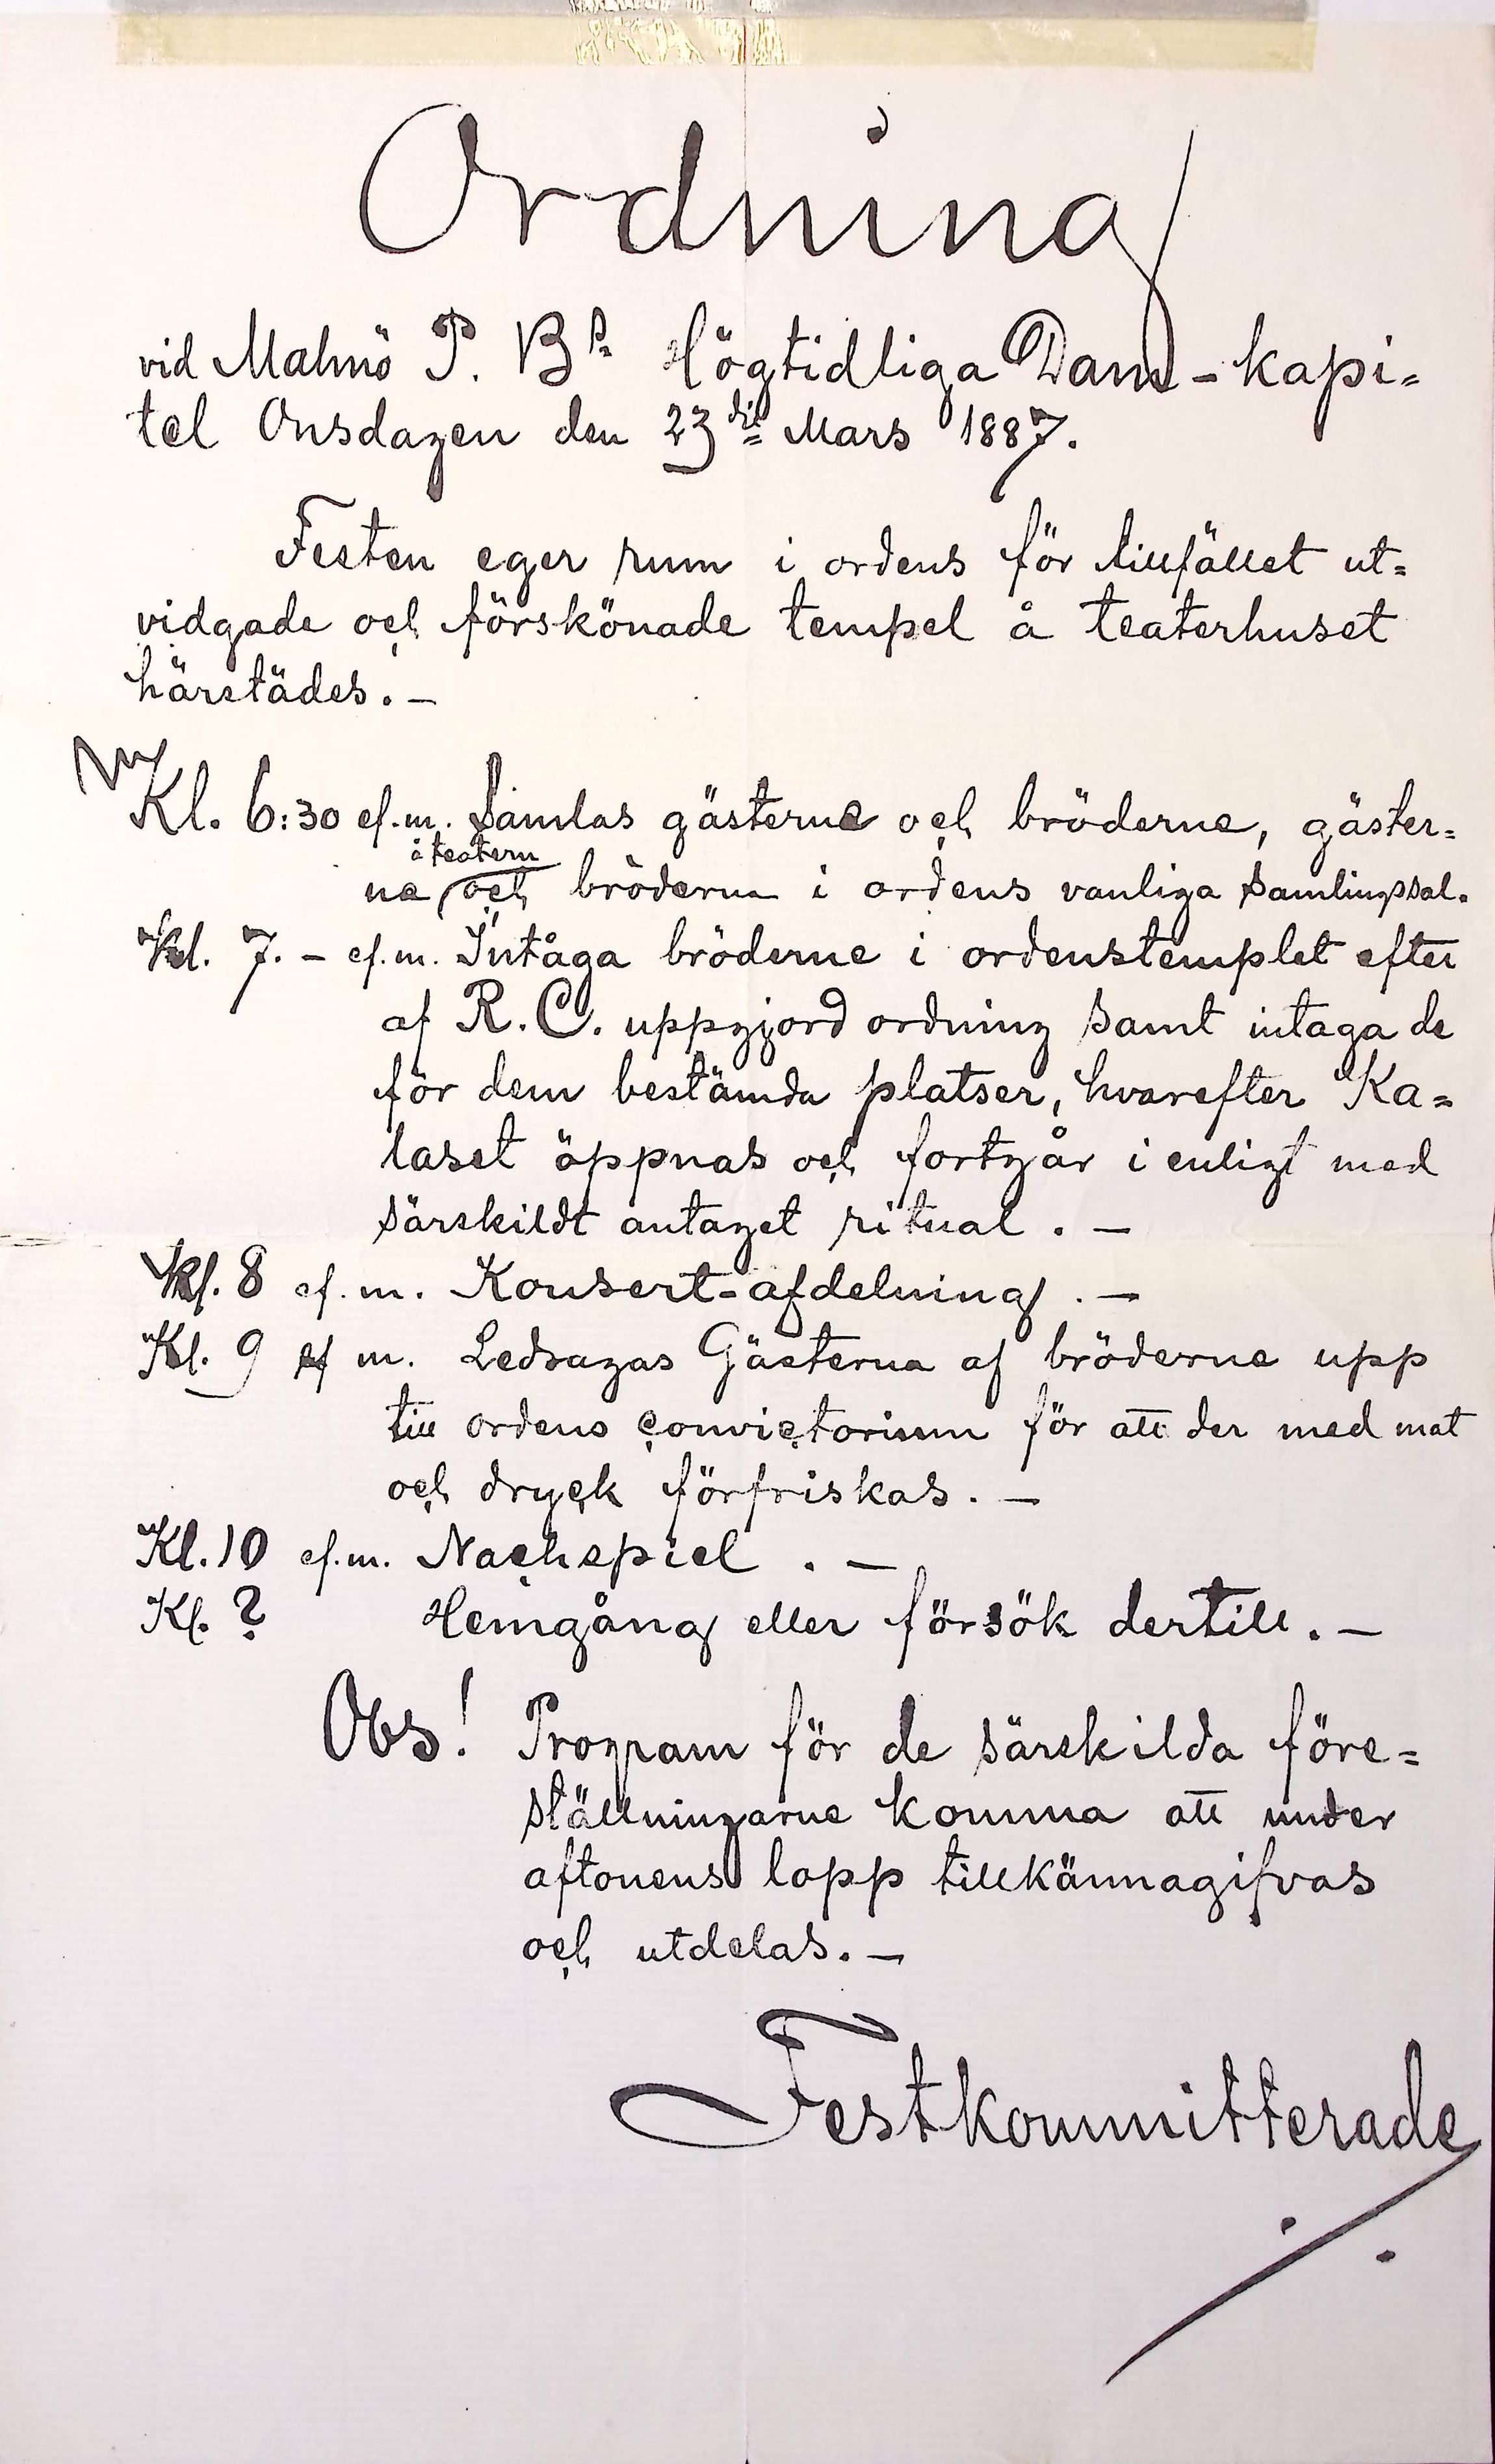 Ordning
vid Malmö P. Bs Högtidliga Dam-kapi=
tel Onsdagen den 23die Mars 1887.
Festen eger rum i ordens för tillfället ut=
vidgade och förskönade tempel å teaterhuset
härstädes. —
Kl. 6:30 ef.m. Samlas gästerne och bröderne, gäster=
å teatern
ne och bröderna i ordens vanliga samlingssal.
Kl. 7. – ef.m. Intåga bröderne i ordenstemplet efter
af R. C. uppgjord ordning samt intaga de
för dem bestämda platser, hvarefter Ka=
laset öppnas och fortgår i enligt med
särskildt antaget ritual. —
Kl. 8 ef.m. Konsert-afdelning. —
Kl. 9 ef m. Ledsagas Gästerna af bröderne upp
till ordens convictorium för att der med mat
och dryck förfriskas. —
Kl. 10 ef.m. Nachspiel. —
Kl. ? Hemgång eller försök dertill. —
Obs! Program för de särskilda före=
ställningarne komma att under
aftonens lopp tillkännagifvas
och utdelas. —
Festkommitterade